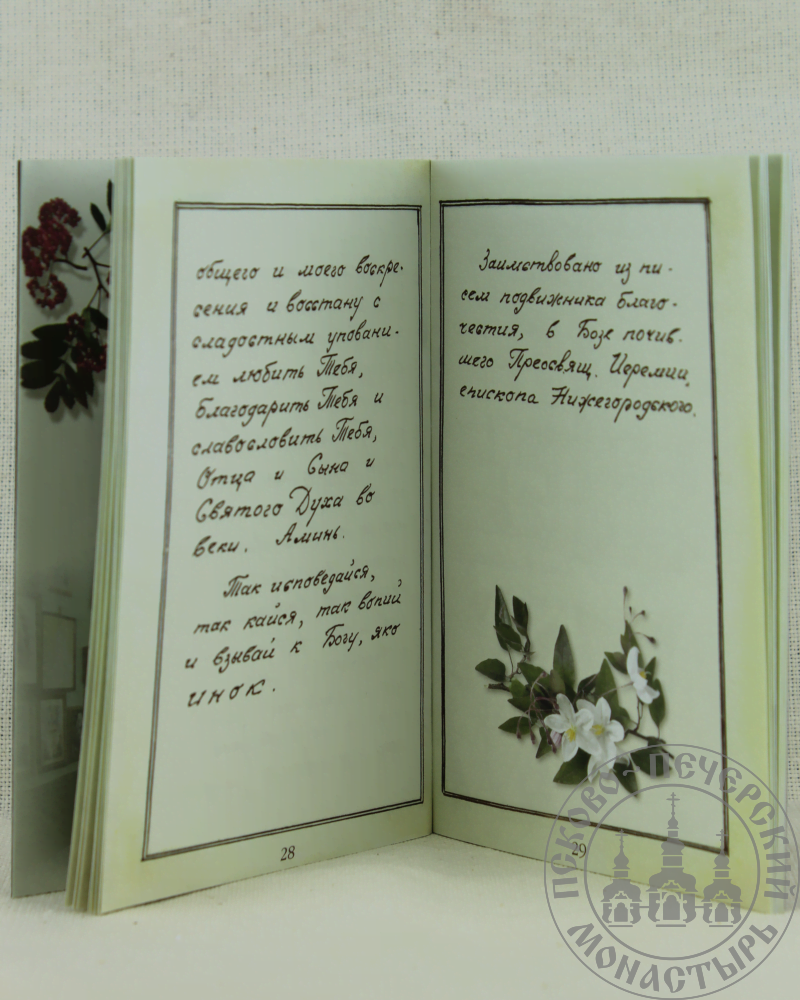 общего и моего воскре-
сения и восстану с
сладостным уповани-
ем любить Тебя,
благодарить Тебя и
славословить Тебя,
Отца и Сына и
Святого Духа во
веки. Аминь.
Так исповедайся,
так кайся, так вопий
и взывай к Богу, яко
инок.
28
Заимствовано из пи-
сем подвижника благо-
честия, в Бозе почив-
шего Преосвящ. Иеремии,
епископа Нижегородского.
29
ПСКОВО-ПЕЧЕРСКИЙ
МОНАСТЫРЬ